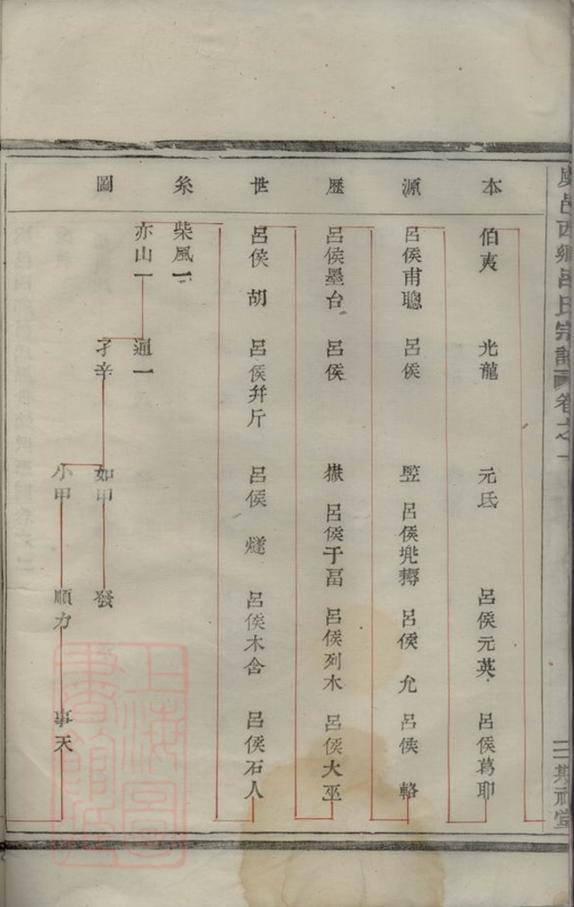 虞邑西鄉呂氏宗譜卷之一
本源歷世系圖
伯夷 光龍 元氏 呂侯元英 呂侯葛卬
呂侯甫聰 呂侯 堅 呂侯兠耨 呂侯 允 呂侯 輅
呂侯墨台 呂侯 嶽 呂侯于畐 呂侯列木 呂侯大巫
呂侯 胡 呂侯幷斤 呂侯 燧 呂侯木舍 呂侯石人
柴風一
亦山一 通一
孑辛 如甲 發
小甲 順力 事天
三 期祠堂
上海圖書館藏